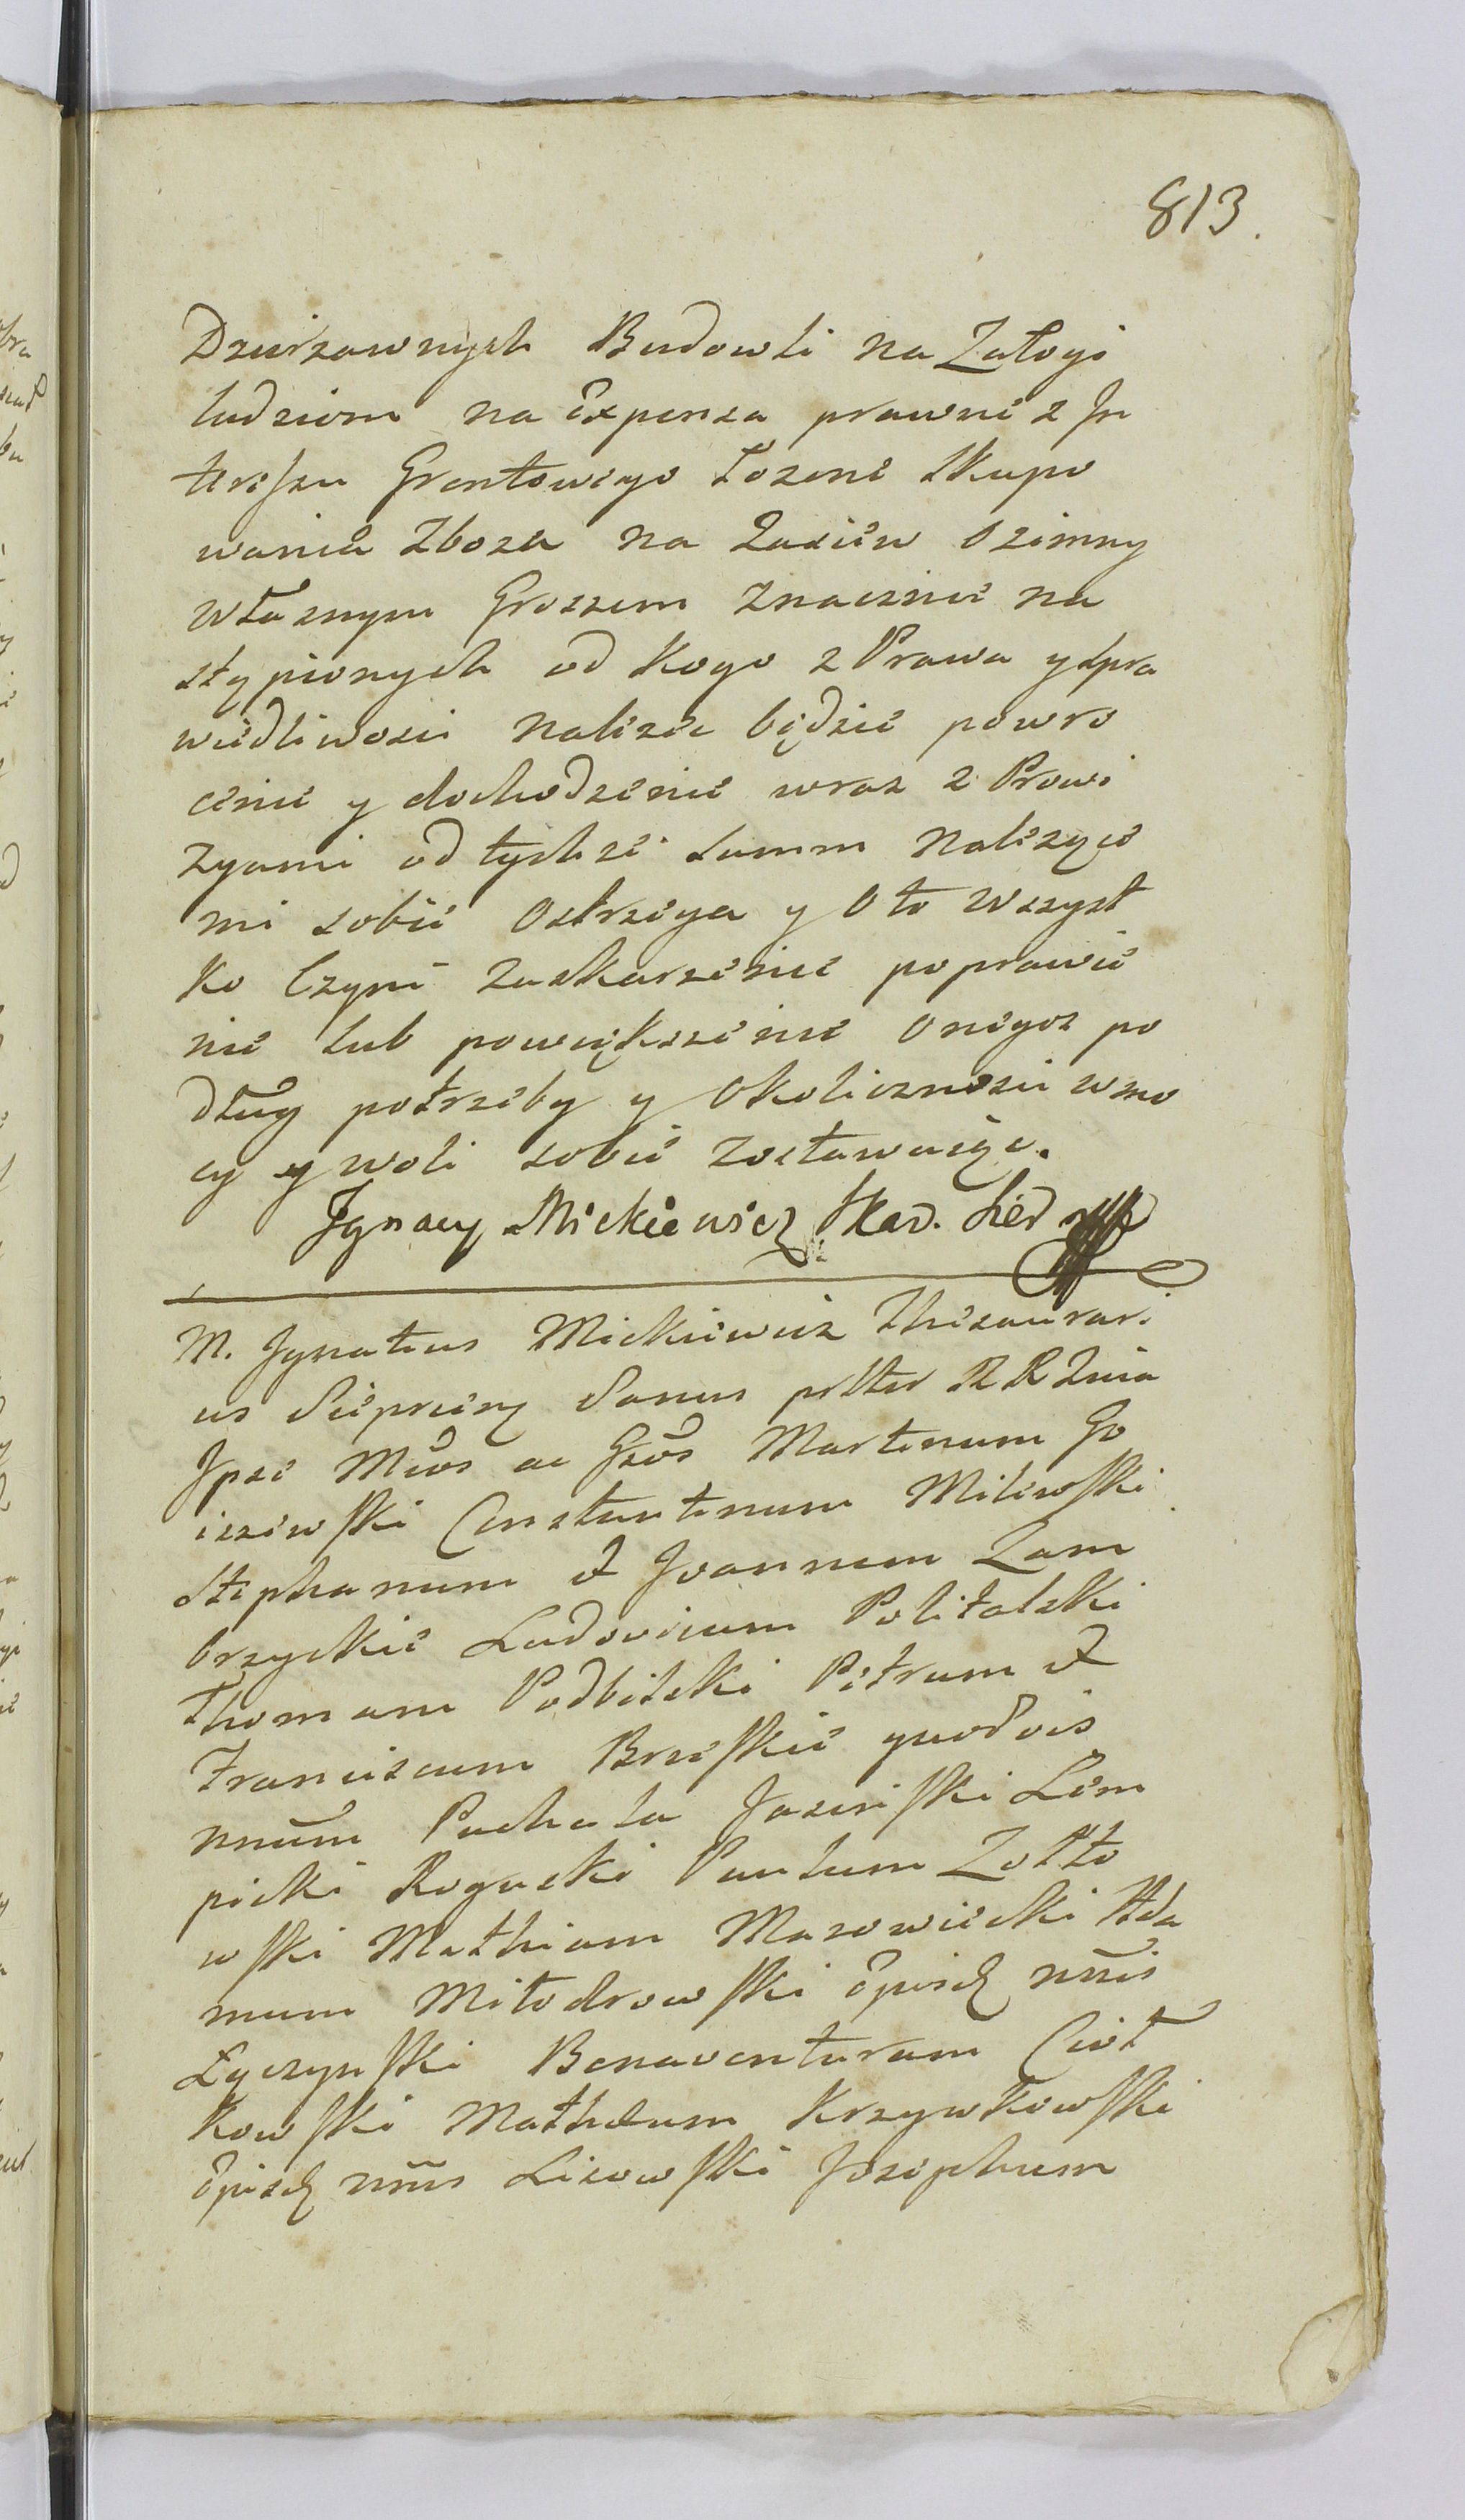 813.
Dzierzawnych Budowli na Załogi
ludziom na Expensa prawne z In
teressu Grontowego Łozone Skupo
wania Zboza na Zasiew Ozimny
własnym Groszem znacznie na
stąpionych od Kogo z Prawa y spra
wiedliwosci nalezec będzie powro
cenie y dochodzenie wraz z Prowi
zyami od tychze Summ nalezące
mi sobie Ostrzega y O to wszyst
ko Czyni zaskarzenie poprawie
nie lub powiększenie onegoz po
dług potrzeby y Okolicznosci w mo
cy y woli sobie zostawuiąc.
Ignacy Mickiewicz Skar.
M. Ignatius Mickiewicz Thesaurari
us
Ipse Mcos ac Gsos Martinum Go
iszewski Constantinum Milewski
Stephanum et Joannem Zam
brzyckie Ludovicum Politalski
Thomam Podbilski Petrum et
Franciscum Brzeskie quodvis
nnum Puchala Jasinski Lem
picki Roguski Paulum Zołto
wski Mathiam Mazowiecki Ada
mum Miłodrowski
Łączynski Bonaventuram Ciot
kowski Mathæum Krzywkowski
Lisowski Josephum